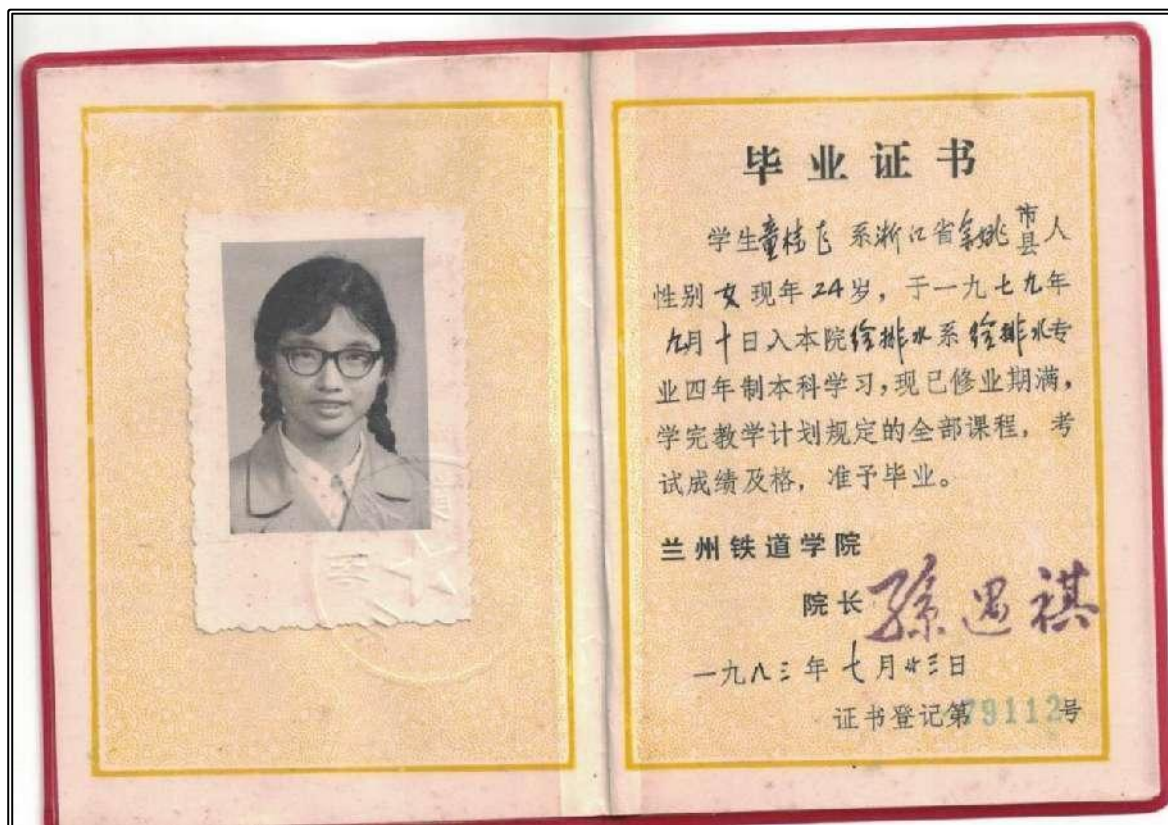 毕业证书
学生童桂飞 系浙江省余姚市县人
性别女现年24岁，于一九七九年
九月十日入本院给排水系给排水专
业四年制本科学习，现已修业期满，
学完教学计划规定的全部课程，考
试成绩及格，准予毕业。
兰州铁道学院
院长 孙遇祺
一九八三年七月廿三日
证书登记第79112号